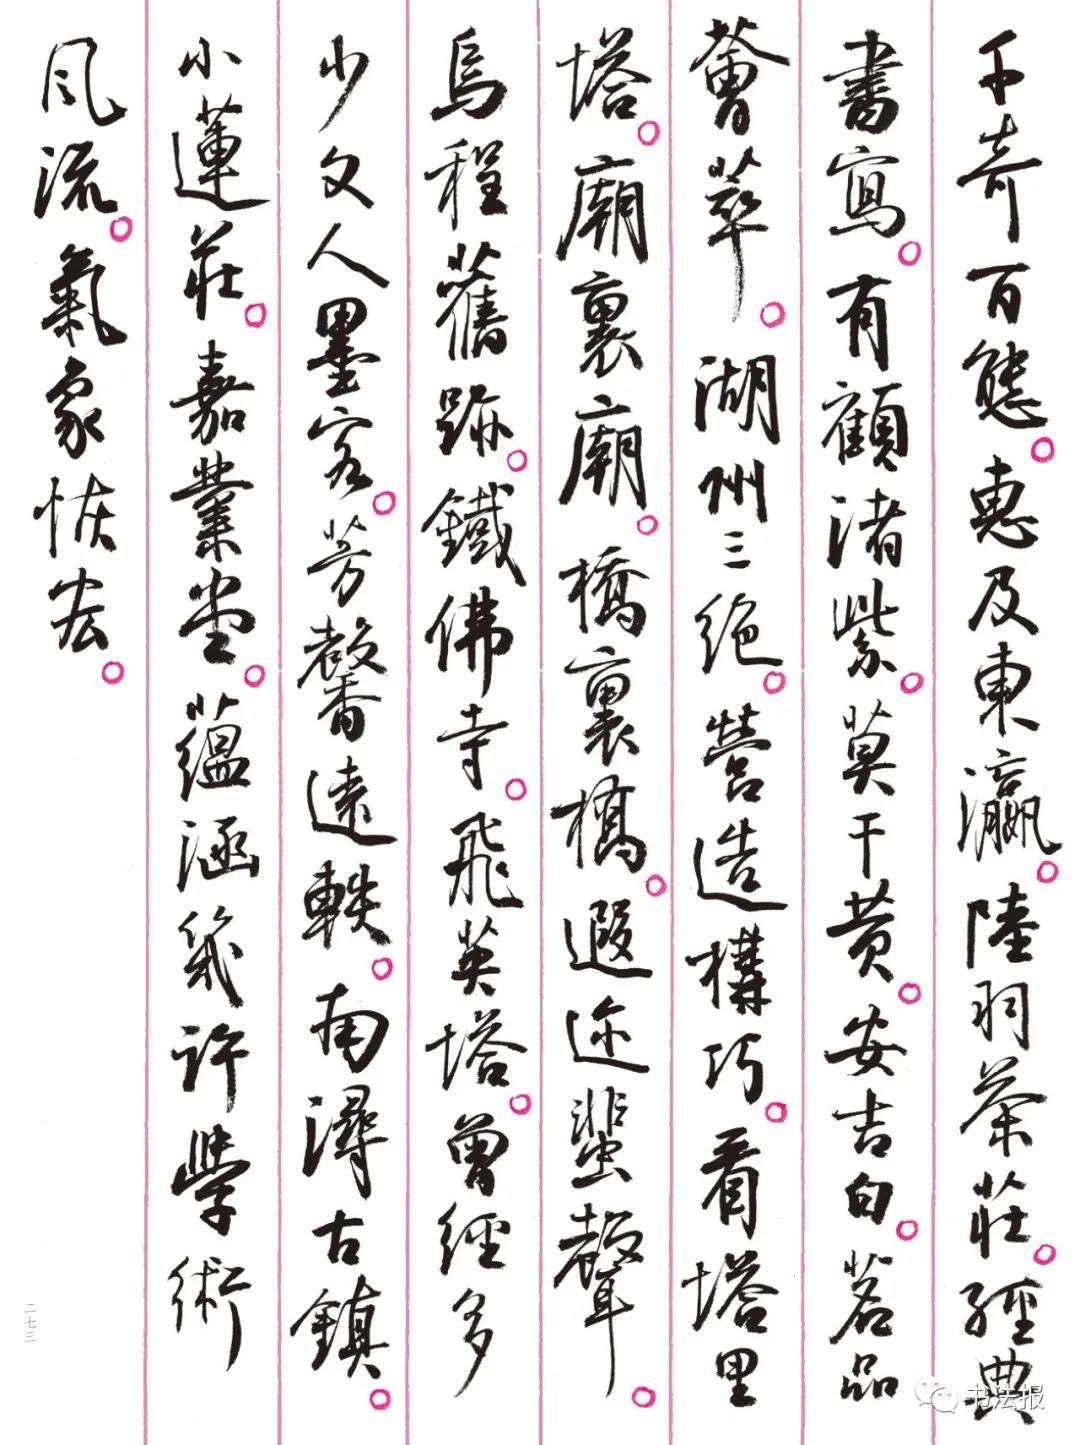 千奇百態。惠及東瀛。陸羽茶莊。經典
書寫。有顧渚紫。莫干黄。安吉白。茗品
薈萃。湖州三絶。營造構巧。看塔里
塔。廟裏廟。橋裏橋。遐迩蜚聲。
烏程舊跡。鐵佛寺。飛英塔。曾經多
少文人墨客。芳馨遠軼。南潯古鎮。
小蓮莊。嘉業堂。蘊涵幾許學術
風流。氣象恢宏。
二七三
书法报